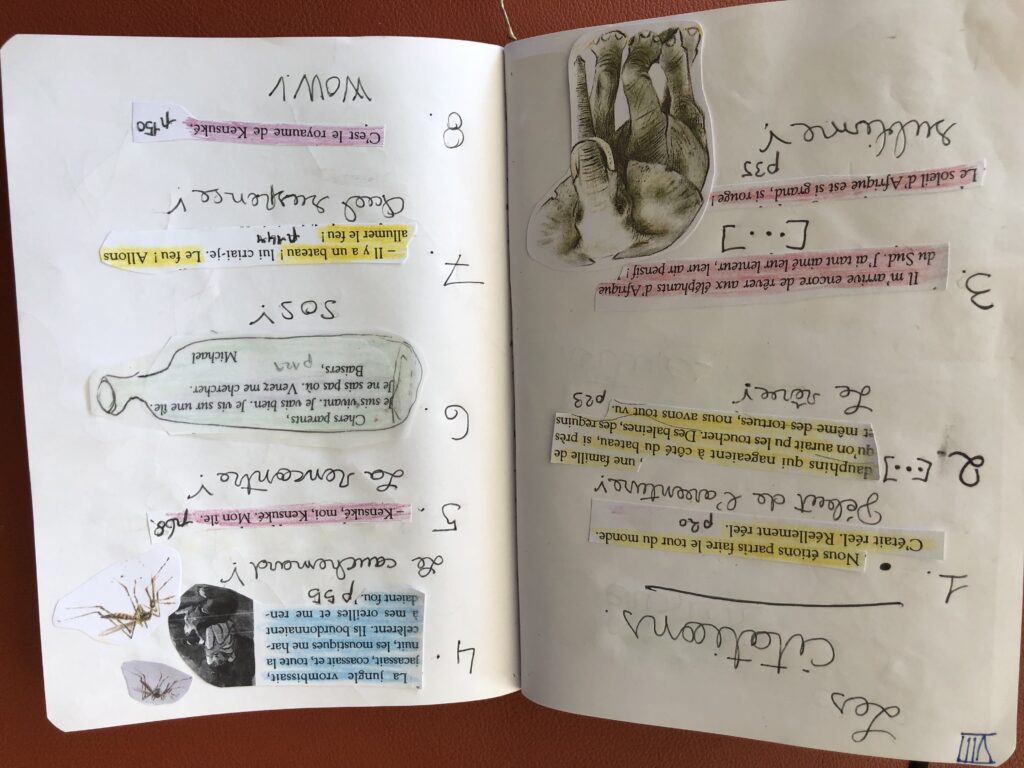 VIII
Les
citations.
1. Nous étions partis faire le tour du monde.
C'était réel. Réellement réel. p20
Début de l'aventure!
2. [...] , une famille de
dauphins qui nageaient à côté du bateau, si près
qu'on aurait pu les toucher. Des baleines, des requins
et même des tortues, nous avons tout vu. p23
Le rêve!
3. Il m'arrive encore de rêver aux éléphants d'Afrique
du Sud. J'ai tant aimé leur lenteur, leur air pensif !
[...]
Le soleil d'Afrique est si grand, si rouge !
p35
sublime!
4. La jungle vrombissait,
jacassait, coassait et, toute la
nuit, les moustiques me har-
celèrent. Ils bourdonnaient
à mes oreilles et me ren-
daient fou. p55
Le cauchemard!
5. –Kensuké, moi, Kensuké. Mon île. p68.
La rencontre!
6. Chers parents,
Je suis vivant. Je vais bien. Je vis sur une île.
Je ne sais pas où. Venez me chercher.
Baisers,
Michael
SOS!
7. – Il y a un bateau ! lui criai-je. Le feu ! Allons
allumer le feu ! p144
Quel suspense!
8. C'est le royaume de Kensuké. p150
WOW!